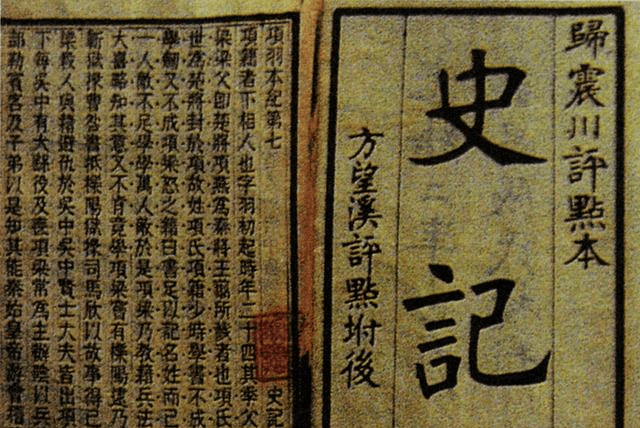 歸震川評點本
史記
方望溪評點坿後
項羽本紀第七
史記
項籍者下相人也字羽初起時年二十四其季父
梁梁父即楚將項燕爲秦將王翦所戮者也項氏
世爲楚將封於項故姓項氏項籍少時學書不成
學劍又不成項梁怒之籍曰書足以記名姓而已
一人敵不足學學萬人敵於是項梁乃教籍兵法
大喜略知其意又不肯竟學項梁嘗有櫟陽逮乃
蘄獄掾曹咎書抵櫟陽獄掾司馬欣以故事得已
梁殺人與籍避仇於吳中吳中賢士大夫皆出項
下每吳中有大繇役及喪項梁常爲主辦陰以兵
部勒賓客及子弟以是知其能秦始皇帝游會稽